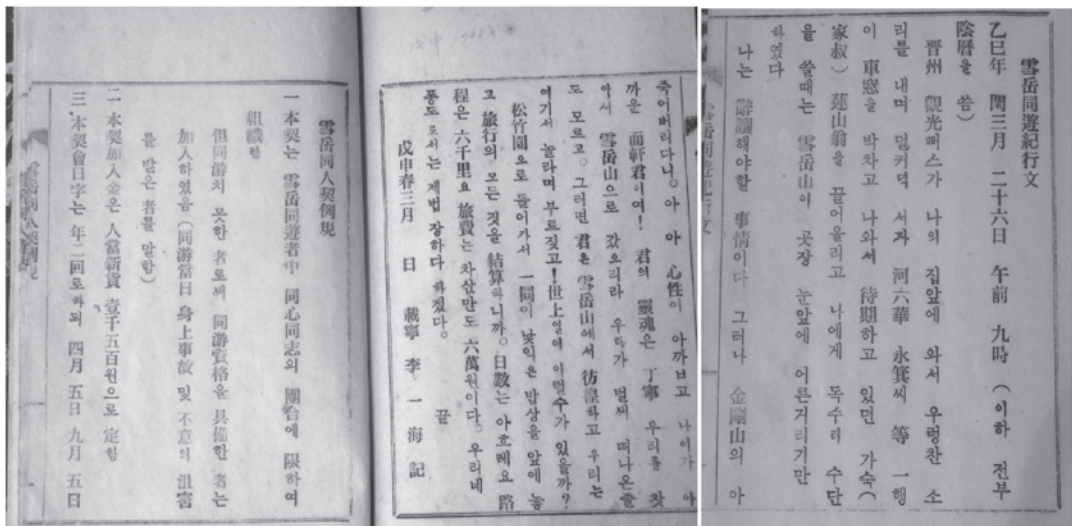 雪岳同遊紀行文
乙巳年 閏三月 二十六日 午前 九時 (이하 전부
陰曆을 씀)
晋州 觀光뻐스가 나의 집앞에 와서 우렁찬 소
리를 내며 덜커덕 서자 河六華 永箕씨 等 一行
이 車窓을 박차고 나와서 待期하고 있던 가숙(
家叔) 蓮山翁을 끌어올리고 나에게 독수리 수단
을 쓸때는 雪岳山이 곳장 눈앞에 어른거리기만
하였다
나는 辭讓해야할 事情이다 그러나 金剛山의 아
戊申 1968
죽어버리다니。아 아 心性이 아까웁고 나이가 아
까운 而軒君이여! 君의 靈魂은 丁寧 우리를 찾
아서 雪岳山으로 갔으리라 우리가 벌써 떠나온줄
도 모르고。그러면 君은 雪岳山에서 彷徨하고 우리는
여기서 놀라며 부르짖고!世上일에 이럴수가 있을까?
松竹園으로 들어가서 一同이 낯익은 밥상을 앞에 놓
고 旅行의 모든 것을 結算하니까。日數는 아흐레요 路
程은 六千里요 旅費는 차산만도 六萬원이다。우리네
풍도로서는 제법 장하다 하겠다。 끝
戊申春三月 日 載寧 李一海 記
雪岳同人契例規
一 本契는 雪岳同遊者中 同心同志의 團合에 限하여
組織함
但同游치 못한 者로써 同游資格을 具備한 者는
加入하였음 (同游當日 身上事故 및 不意의 沮害
를 받은者를 말함)
二 本契加入金은 人當新貨 壹千五百원으로 定함
三 本契會日字는 年二回로하되 四月 五日 九月 五日
雪岳同人契例規